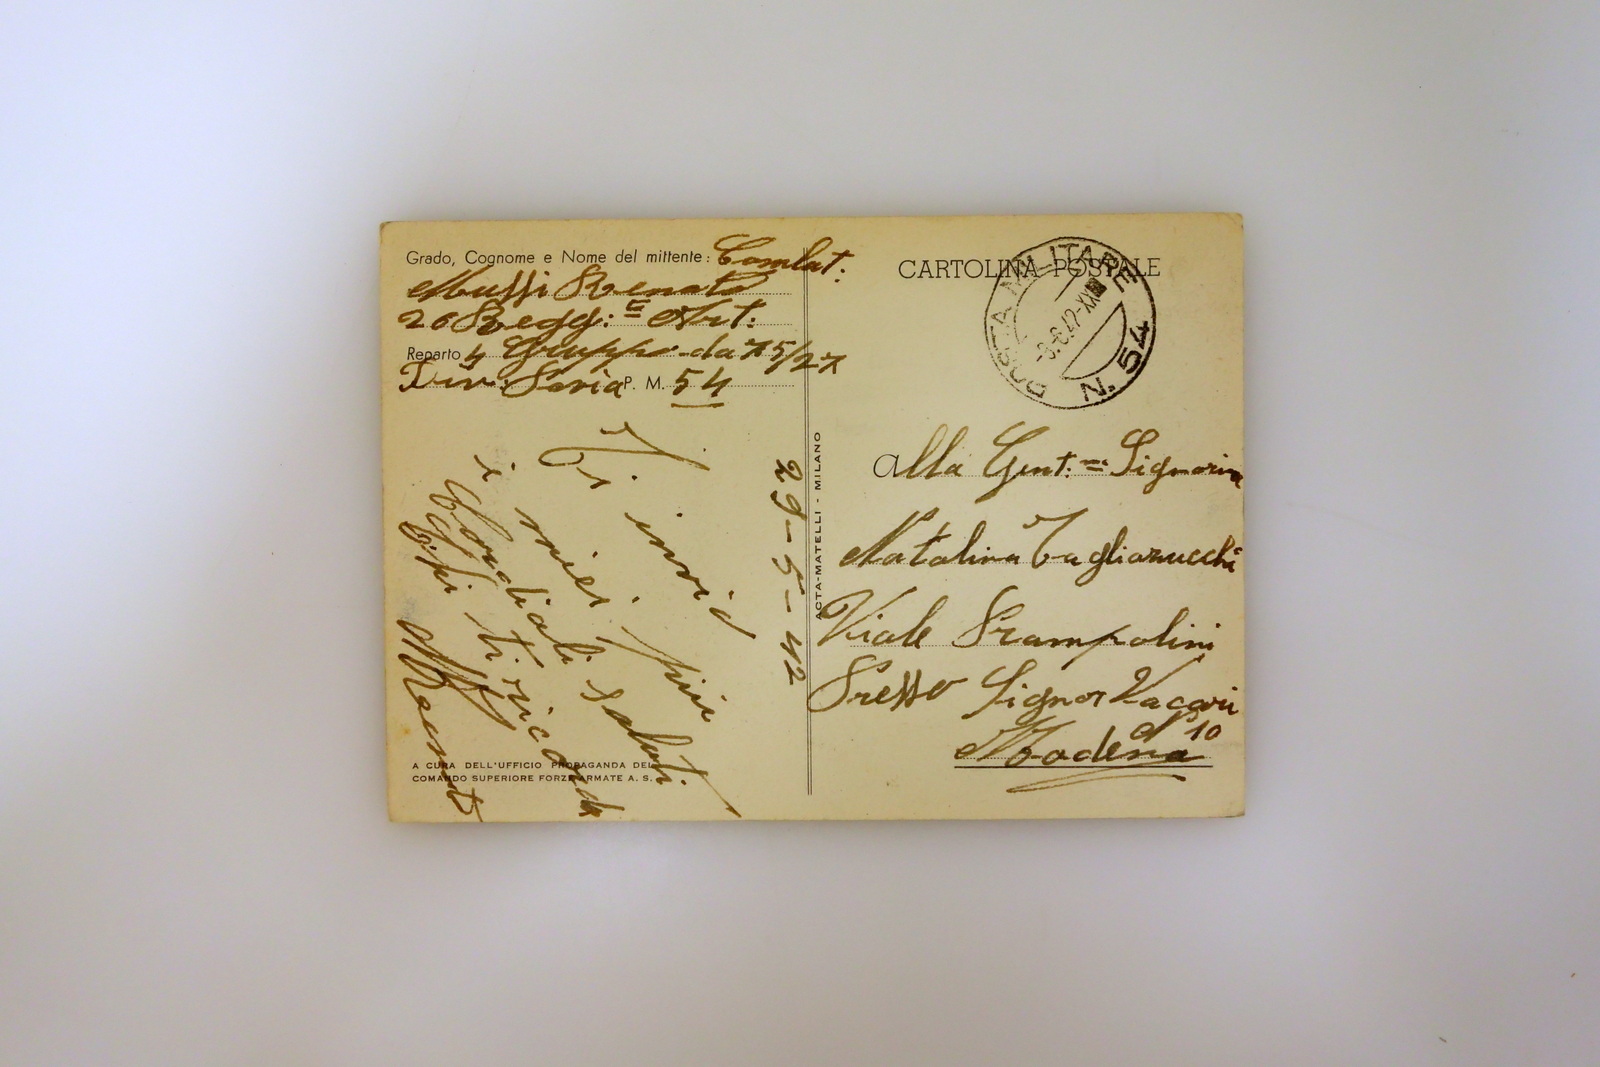 Grado, Cognome e Nome del mittente: Combat.
Mussi Renato
26 Regg: Art:
Reparto 4 Gruppo da 75/27
Div: Savia P. M. 54
29-5-42
Ti invio
i miei più
Cordiali saluti
ti ricorda
Renato
A CURA DELL'UFFICIO PROPAGANDA DEL
COMANDO SUPERIORE FORZE ARMATE A. S.
ACTA-MATELLI - MILANO
CARTOLINA POSTALE
POSTA MILITARE N. 54
Alla Gent.ma Signorina
Natalina Tagliazucchi
Viale Prampolini
Presso Signor Vaccari
N° 10
Modena